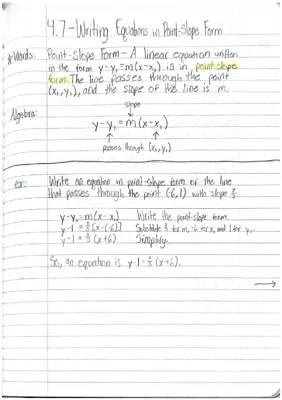 4.7-Writing Equations in Point-Slope Form
*Words: Point-Slope Form - A linear equation written
in the form y-y₁=m(x-x₁) is in point-slope
form. The line passes through the point
(x₁,y₁), and the slope of the line is m.
Algebra:
slope
y-y₁=m(x-x₁)
passes through (x₁,y₁)
ex: Write an equation in point-slope form or the line
that passes through the point (-6,1) with slope ⅔.
y-y₁=m(x-x₁) Write the point-slope form
y-1=⅔[x-(-6)] Substitute ⅔ for m, -6 for x₁, and 1 for y₁.
y-1=⅔(x+6) Simplify.
So, an equation is y-1=⅔(x+6).